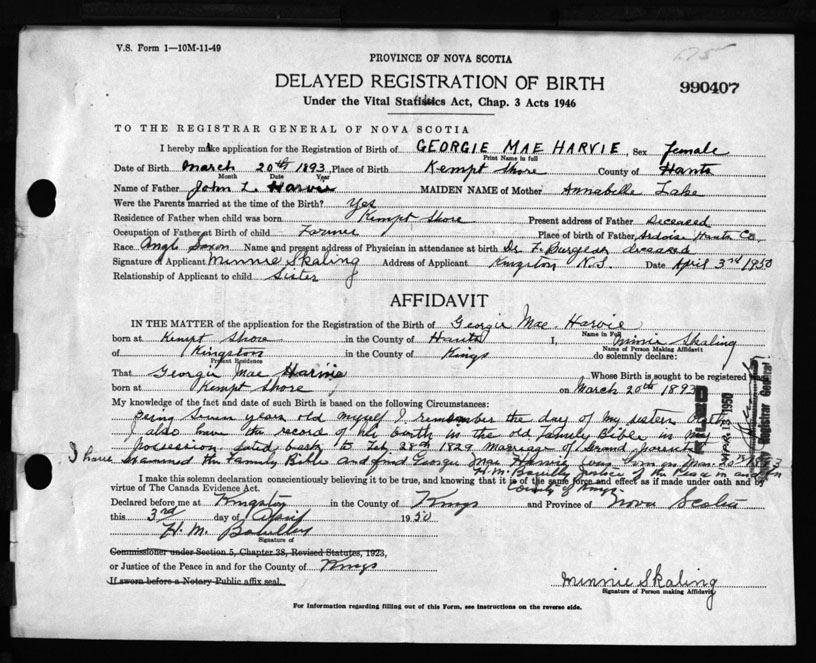 V.S. Form 1—10M-11-49
PROVINCE OF NOVA SCOTIA
DELAYED REGISTRATION OF BIRTH
990407
Under the Vital Statistics Act, Chap. 3 Acts 1946
TO THE REGISTRAR GENERAL OF NOVA SCOTIA
I hereby make application for the Registration of Birth of GEORGIE MAE HARVIE, Sex female
Print Name in full
Date of Birth March 20th 1893, Place of Birth Kempt Shore County of Hants
Month Date Year
Name of Father John L. Harvie MAIDEN NAME of Mother Annabelle Lake
Were the Parents married at the time of the Birth? Yes
Residence of Father when child was born Kempt Shore Present address of Father Deceased
Occupation of Father at Birth of child Farmer Place of birth of Father, Ardoise Hants Co.
Race Anglo Saxon Name and present address of Physician in attendance at birth Dr. F. deceased
Signature of Applicant Minnie Skaling Address of Applicant Kingston N.S. Date April 3rd 1950
Relationship of Applicant to child Sister
AFFIDAVIT
IN THE MATTER of the application for the Registration of the Birth of Georgie Mae Harvie
Name in Full
born at Kempt Shore in the County of Hants I, Minnie Skaling
Name of Person Making Affidavit
of Kingston in the County of Kings do solemnly declare:
Present Residence
That Georgie Mae Harvie Whose Birth is sought to be registered
born at Kempt Shore on March 20th 1893
My knowledge of the fact and date of such Birth is based on the following Circumstances:
Being Seven years old myself I remember the day of my sisters birth
I also have the record of his birth in the old Family Bible in my
possession dated back to Feb. 28th 1829 Marriage of Grand parents
I have examined the Family Bible and find Georgie Mae Harvie was born on Mar. 20th 1893
H.M. Justice of the Peace in and for
County of Kings
I make this solemn declaration conscientiously believing it to be true, and knowing that it is of the same force and effect as if made under oath and
virtue of The Canada Evidence Act.
Declared before me at Kingston in the County of Kings and Province of Nova Scotia
this 3rd day of April 1950
H. M.
Signature of
Commissioner under Section 5, Chapter 38, Revised Statutes, 1923,
or Justice of the Peace in and for the County of Kings
If sworn before a Notary Public affix seal.
Minnie Skaling
Signature of Person making Affidavit
For Information regarding filling out of this Form, see instructions on the reverse side.
FILED
1950
Deputy Registrar General